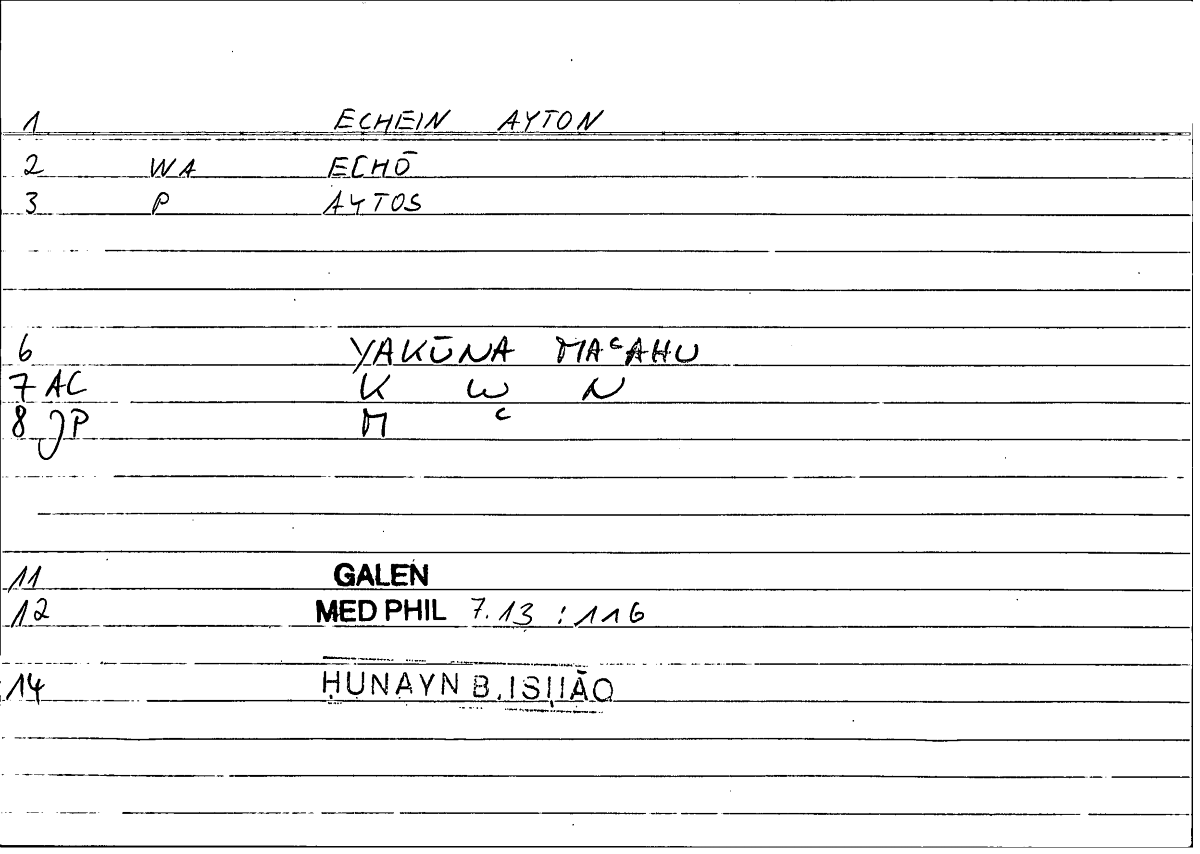 1 ECHEIN AYTON
2 WA ECHŌ
3 P AYTOS
6 YAKŪNA MAᶜAHU
7 AC K W N
8 JP M ᶜ
11 GALEN
12 MED PHIL 7.13 : 116
14 ḤUNAYN B. ISḤĀQ